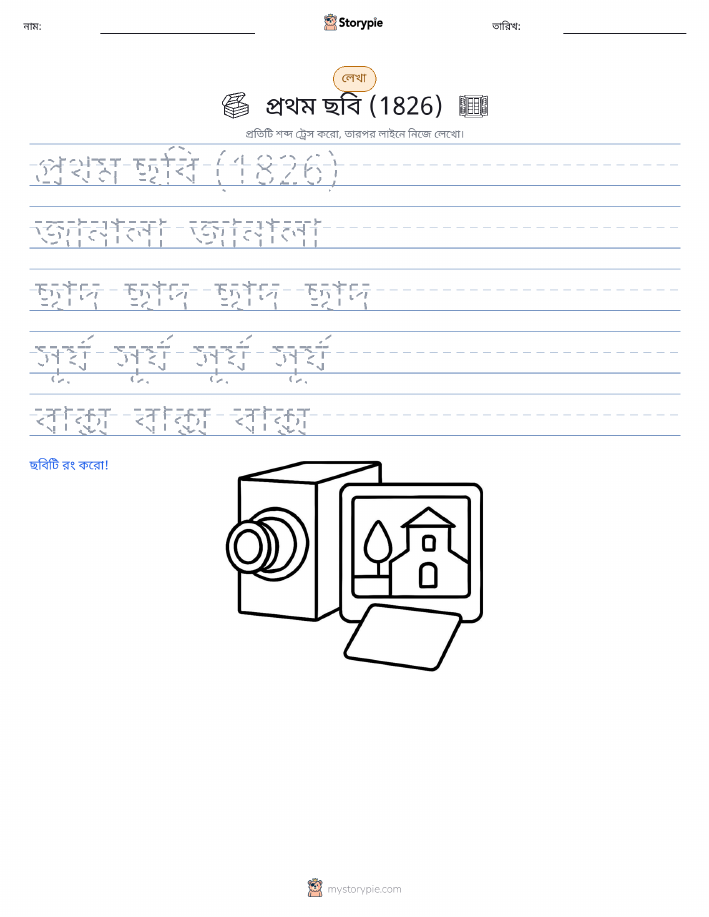 নাম: Storypie তারিখ:
লেখা
প্রথম ছবি (1826)
প্রতিটি শব্দ ট্রেস করো, তারপর লাইনে নিজে লেখো।
প্রথম ছবি (1826)
জানালা জানালা
ছাদ ছাদ ছাদ ছাদ
সূর্য সূর্য সূর্য সূর্য
বাক্স বাক্স বাক্স
ছবিটি রং করো!
mystorypie.com